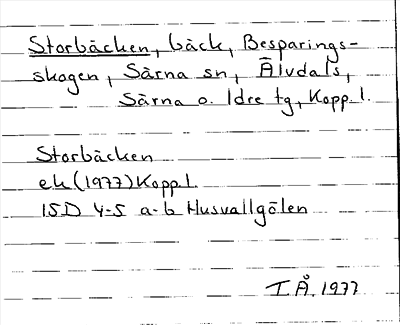 Storbäcken, bäck, Besparings-
skogen, Särna sn, Älvdals,
Särna o. Idre tg, Kopp. l.
Storbäcken
ek (1977) Kopp. l.
15D 4-5 a-b Husvallgölen
T.Å. 1977